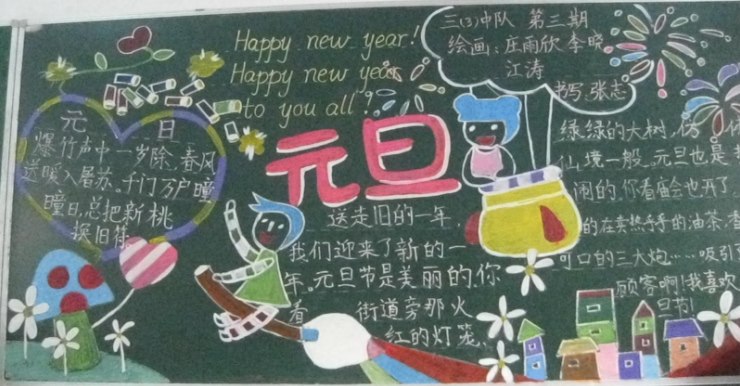 Happy new year!
Happy new year
to you all!
三(3)中队 第三期
绘画:庄雨欣 李晓
江涛
书写:张志
元旦
元 日
爆竹声中一岁除,春风
送暖入屠苏。千门万户曈
曈日,总把新桃
换旧符。
送走旧的一年
我们迎来了新的一
年。元旦节是美丽的,你
看 街道旁那火
红的灯笼、
绿绿的大树,仿
仙境一般。元旦也是
闹的,你看庙会也开了
的在卖热乎乎的油茶,
可口的三大炮……吸引
顾客啊!我喜欢
旦节!